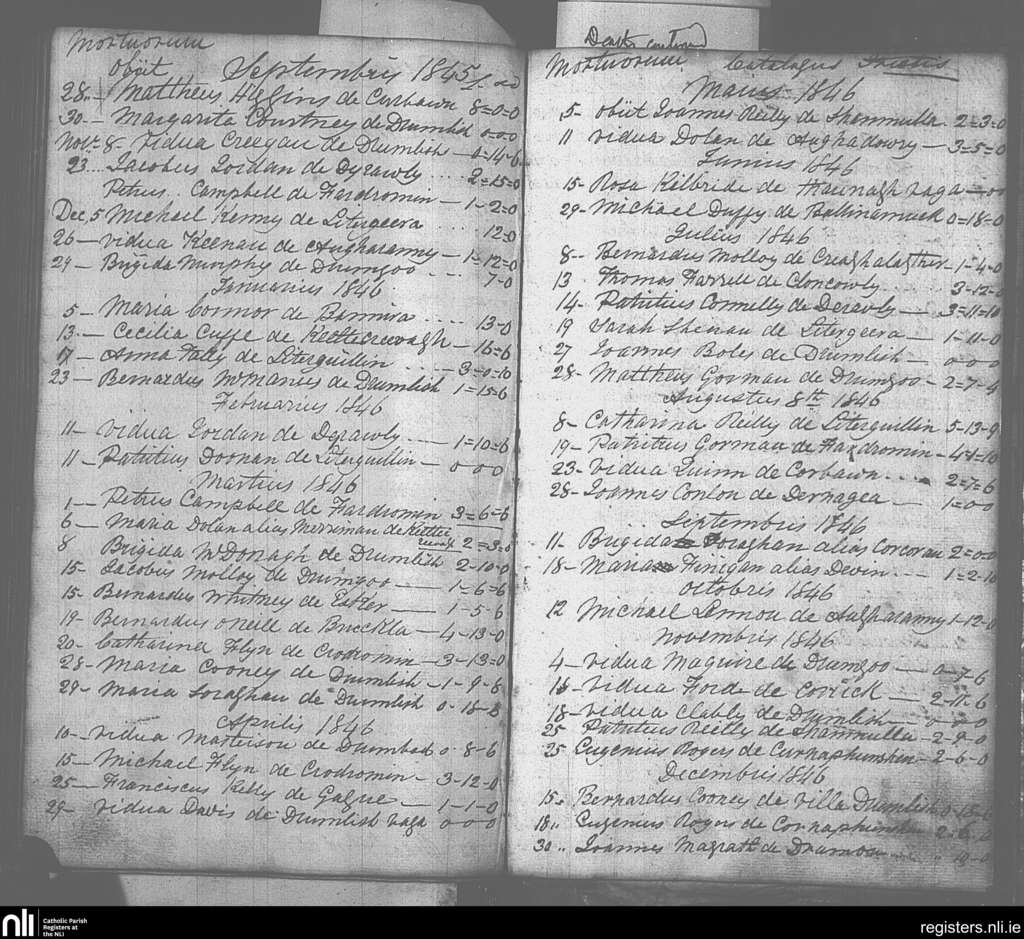 Mortuorum
obiit Septembris 1845 £ s d
28. - Mattheus Higgins de Curbawn 8=0=0
30. - Margarita Courtney de Drumlish 0=0=0
Novr. 8 - Vidua Creegan de Drumlish - 0=14-6
23... Jacobus Jordan de Dyrawly .... 2=15=0
Petrus Campbell de Fardromin - 1-2=0
Dec. 5 Michael Kenny de Litergeera .... 12=0
26 - Vidua Keenan de Augharanny - 1=12=0
29 - Brigida Murphy de Drumgoo ... 7-0
Januarius 1846
5 - Maria Connor de Barmira .... 13-0
13 - Cecilia Cuffe de - 16=6
17 - Anna Fally de Literguillin .... 3=0=10
23 - Bernardus McManus de Drumlish 1=15=6
Februarius 1846
11 - Vidua Jordan de Derawly .... 1=10=6
11 - Patritius Doonan de Literguillin - 0 0 0
Martius 1846
1 - Petrus Campbell de Fardromin 3=6=6
6 - Maria Dolan alias Merriman de 2=3=0
8 Brigida McDonagh de Drumlish 2-10=0
15 - Jacobus Molloy de Drumgoo - 1=6=6
15 - Bernardus Whitney de Esker - 1-5-6
19 - Bernardus oneill de - 4-13-0
20 - Catharina Flyn de Crodromin - 3-13=0
28 - Maria Cooney de Drumlish - 1-9-6
29 - Maria Soraghan de Drumlish 0-15-
Aprilis 1846
10 - Vidua de 0-8-6
15 - Michael Flyn de Crodromin - 3-12-0
25 - Franciscus Kelly de Gague - 1-1-0
29 - Vidua Davis de Drumlish vaga 0=0=0
Deaths
Mortuorum Catalogus
Maius 1846
5 - obiit Joannes Reilly de Shanmulla - 2=3=0
11 vidua Dolan de Aughadowry - 3=5=0
Junius 1846
15 - Rosa Kilbride de vaga
29 - Michael Duffy de Ballinamuck 0=18=0
Julius 1846
8 - Bernardus Molloy de - 1-4-0
13 Thomas Farrell de Cloncowly ... 3-12-
14 - Patritius Connelly de Derawly - 3=11=10
19 Sarah de Litergeera - 1-11-0
27 Joannes Boles de Drumlish - 0-0-0
28 - Mattheus Gorman de Drumgoo - 2=7-4
Augustus 8th 1846
8 - Catharina Reilly de Literguillin 5-13-9
19 - Patritius Gorman de Fardromin - 4-1-10
23 - Vidua Quinn de Corbawn .... 2=7=6
28 - Joannes Conlon de Dernagea - 1=0=0
Septembris 1846
11 - Brigida Soraghan alias Corcoran 2=0=0
18 - Maria Finigan alias Devin ... 1=2-10
Octobris 1846
12 Michael Lennon de Augharanny 1-12-0
Novembris 1846
4 - Vidua Maguire de Drumgoo - 0-7-6
16 - Vidua Forde de Corrick - 2-11-6
18 - vidua Clabby de Drumlish - 0-0-0
25 Patritius Reilly de Shanmulla - 2-9-0
25 Eugenius Rogers de - 2-6-0
Decembris 1846
15 - Bernardus Cooney de Villa Drumlish
18 .. Eugenius Rogers de
30 .. Joannes Magrath de
nli
Catholic Parish
Registers at
the NLI
registers.nli.ie